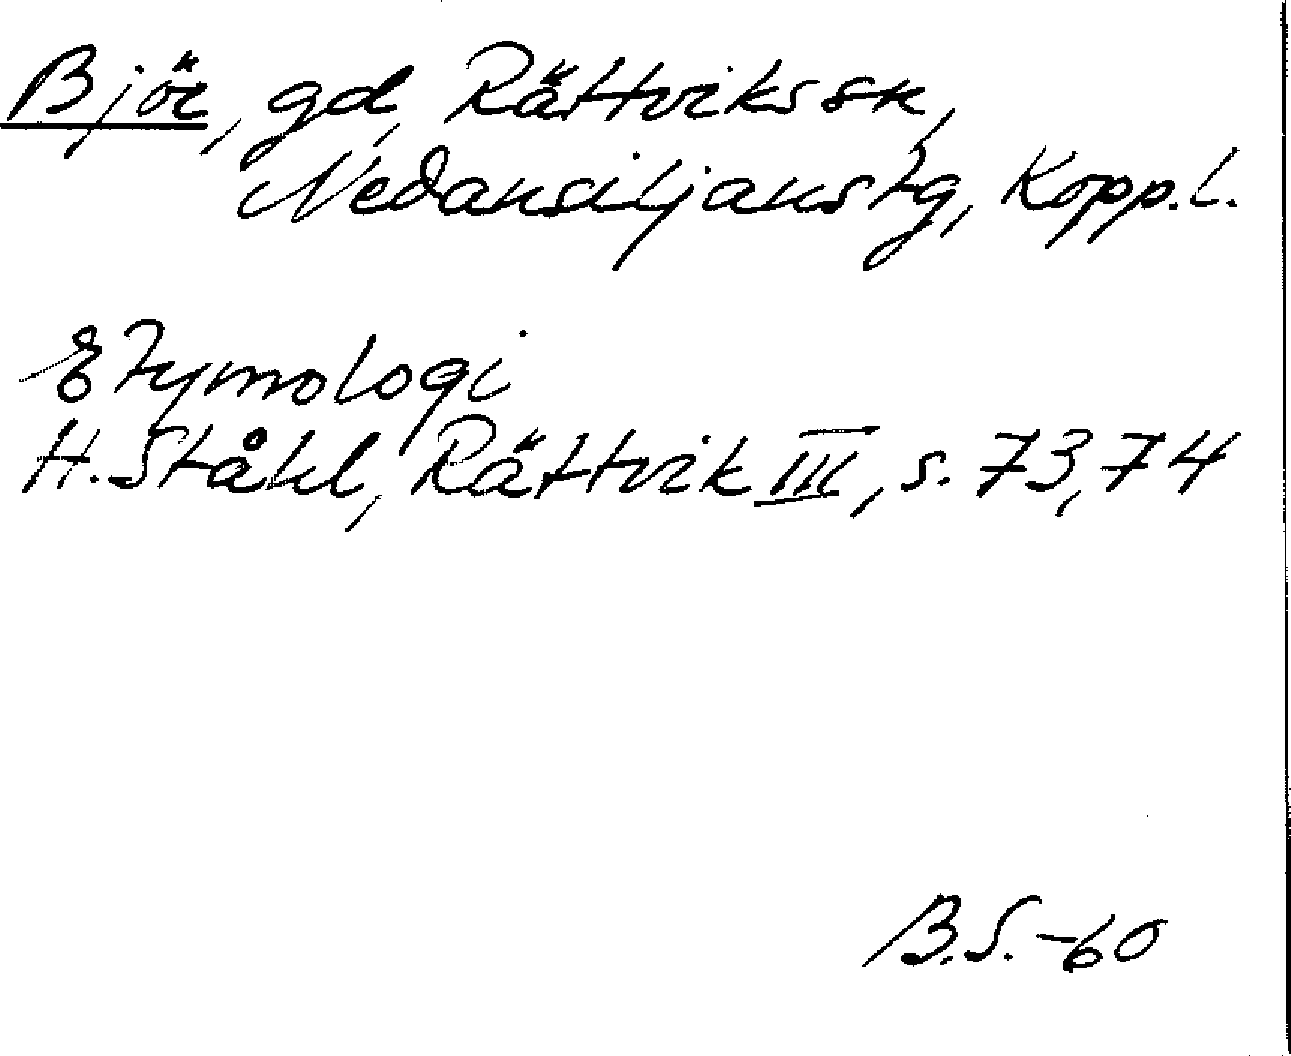 Björ, gd, Rättviks sn,
Nedansiljans tg, Kopp. l.
Etymologi
H. Ståhl, Rättvik III, s. 73, 74
B.S. -60